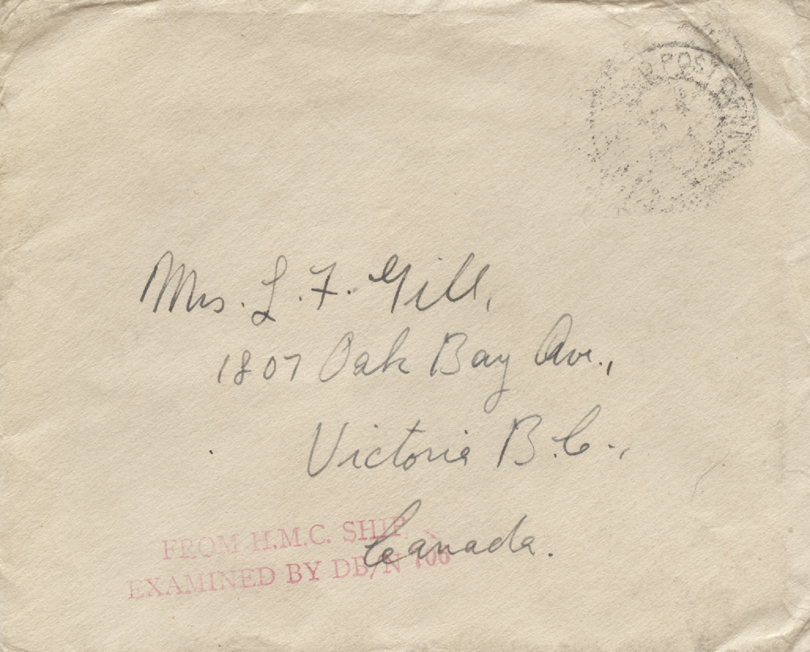 POST OFF
Mrs. L. F. Gill,
1807 Oak Bay Ave.,
Victoria B.C.,
Canada.
FROM H.M.C. SHIP
EXAMINED BY DB/N